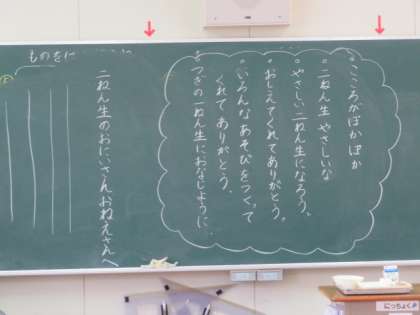 。こころがぽかぽか
。二ねん生やさしいな
。やさしい二ねん生になろう。
。おしえてくれてありがとう。
。いろんなあそびをつくって
くれてありがとう。
。つぎの一ねん生におなじように…
二ねん生のおにいさんおねえさんへ
ものをに
にっちょく